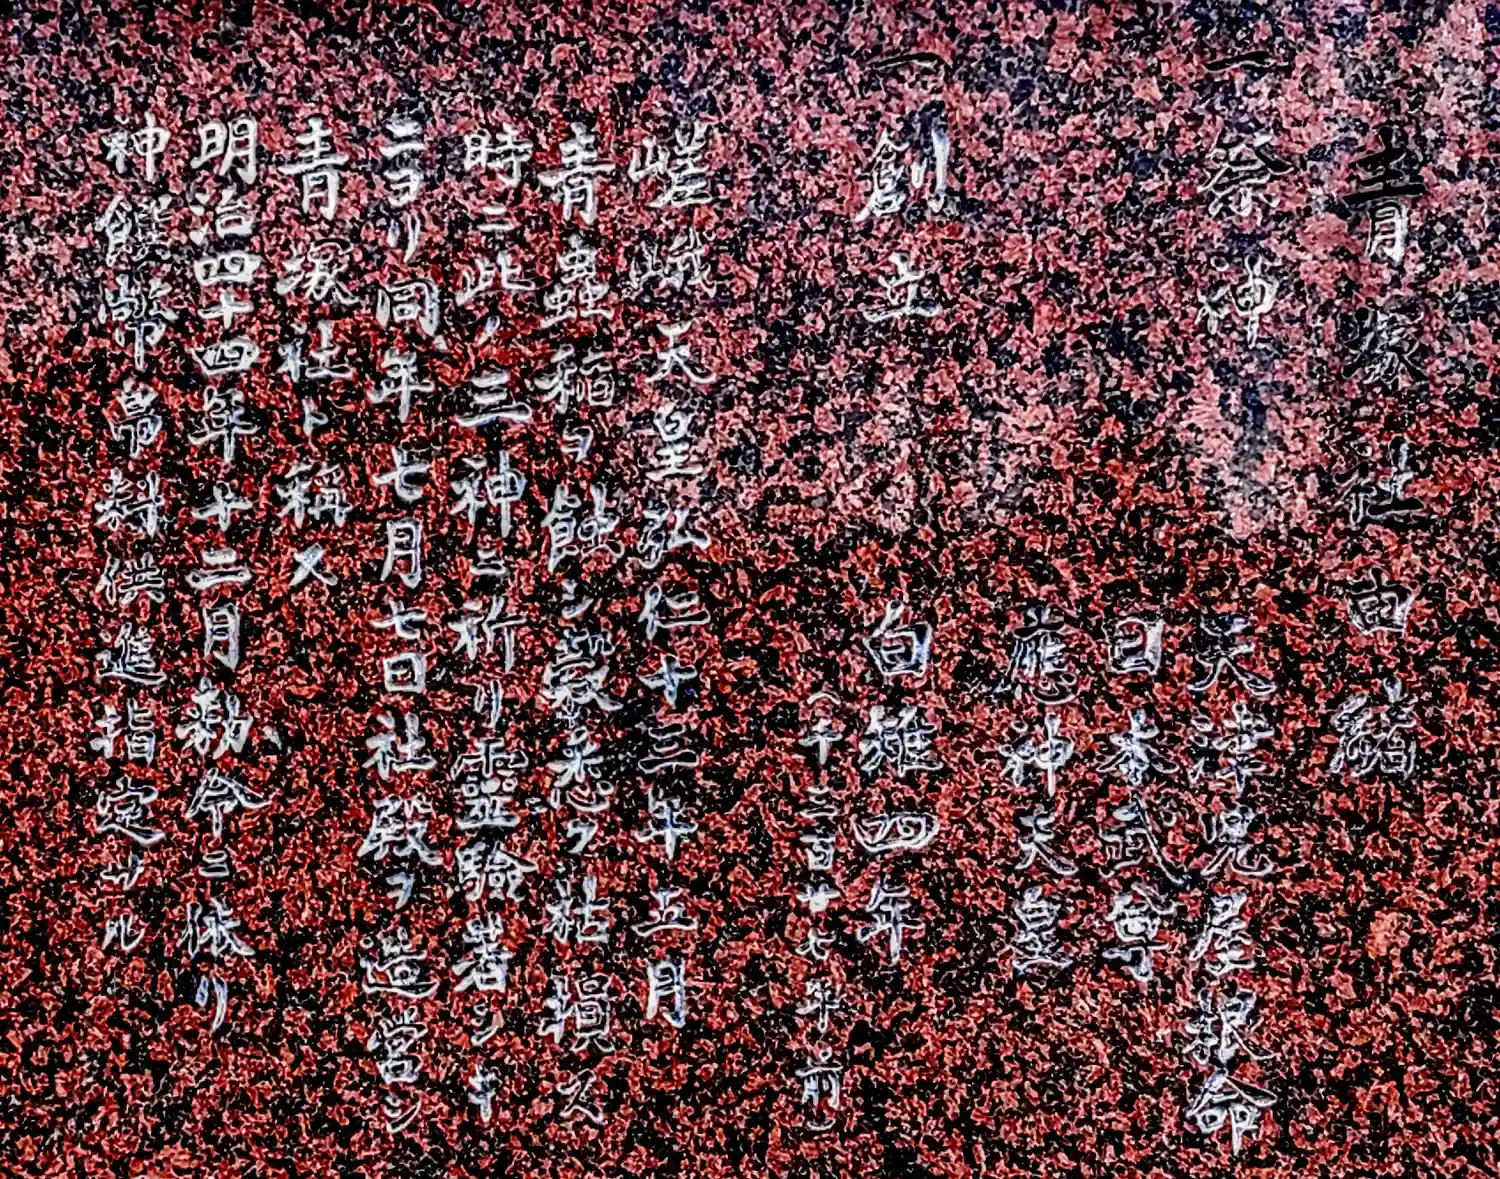 青塚社由緒
一 祭神 天津児屋根命
日本武尊
應神天皇
一 創立 白雉四年
(千三百廿七年前)
嵯峨天皇弘仁十三年五月
青蟲稲ヲ蝕シ穀禾悉ク枯損ス
時ニ此ノ三神ニ祈リ霊驗著シキ
ニヨリ同年七月七日社殿ヲ造営シ
青塚社ト稱ス
明治四十四年十二月勅令ニ依リ
神饌幣帛料供進指定サル